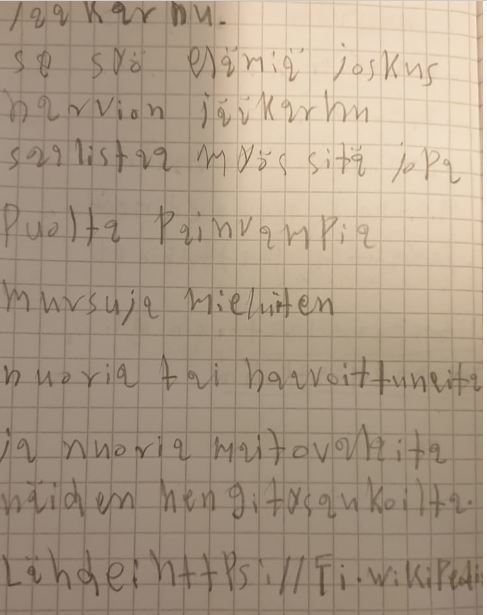 Jääkarhu.
se syö eläimiä joskus
harvion jääkarhu
saalistaa myös sitä jopa
puolta painvampia
mursuja mieluiten
nuoria tai haavoittuneita
ja nuoria maitovalaita
näiden hengitysaukoilta.
Lähde: https://fi.wikipedi